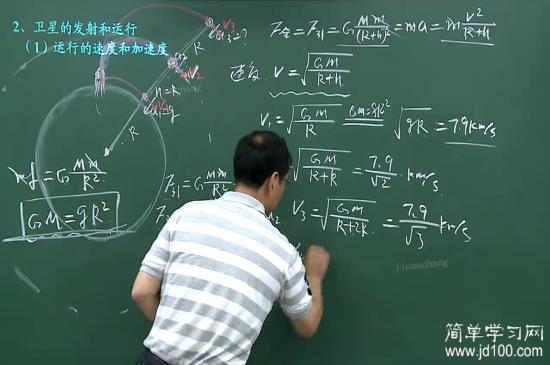 2、卫星的发射和运行
（1）运行的速度和加速度
V3
R
h=R
R
mg=G Mm/R²
GM=gR²
F向=G Mm/(R+h)²=ma=m V²/(R+h)
速度 V=√(GM/(R+h))
V₁=√(GM/R) GM=gR² √(gR)=7.9km/s
√(GM/(R+R))=7.9/√2 km/s
V₃=√(GM/(R+2R))=7.9/√3 km/s
=G Mm/R²
liuaochang
简单学习网
www.jd100.com